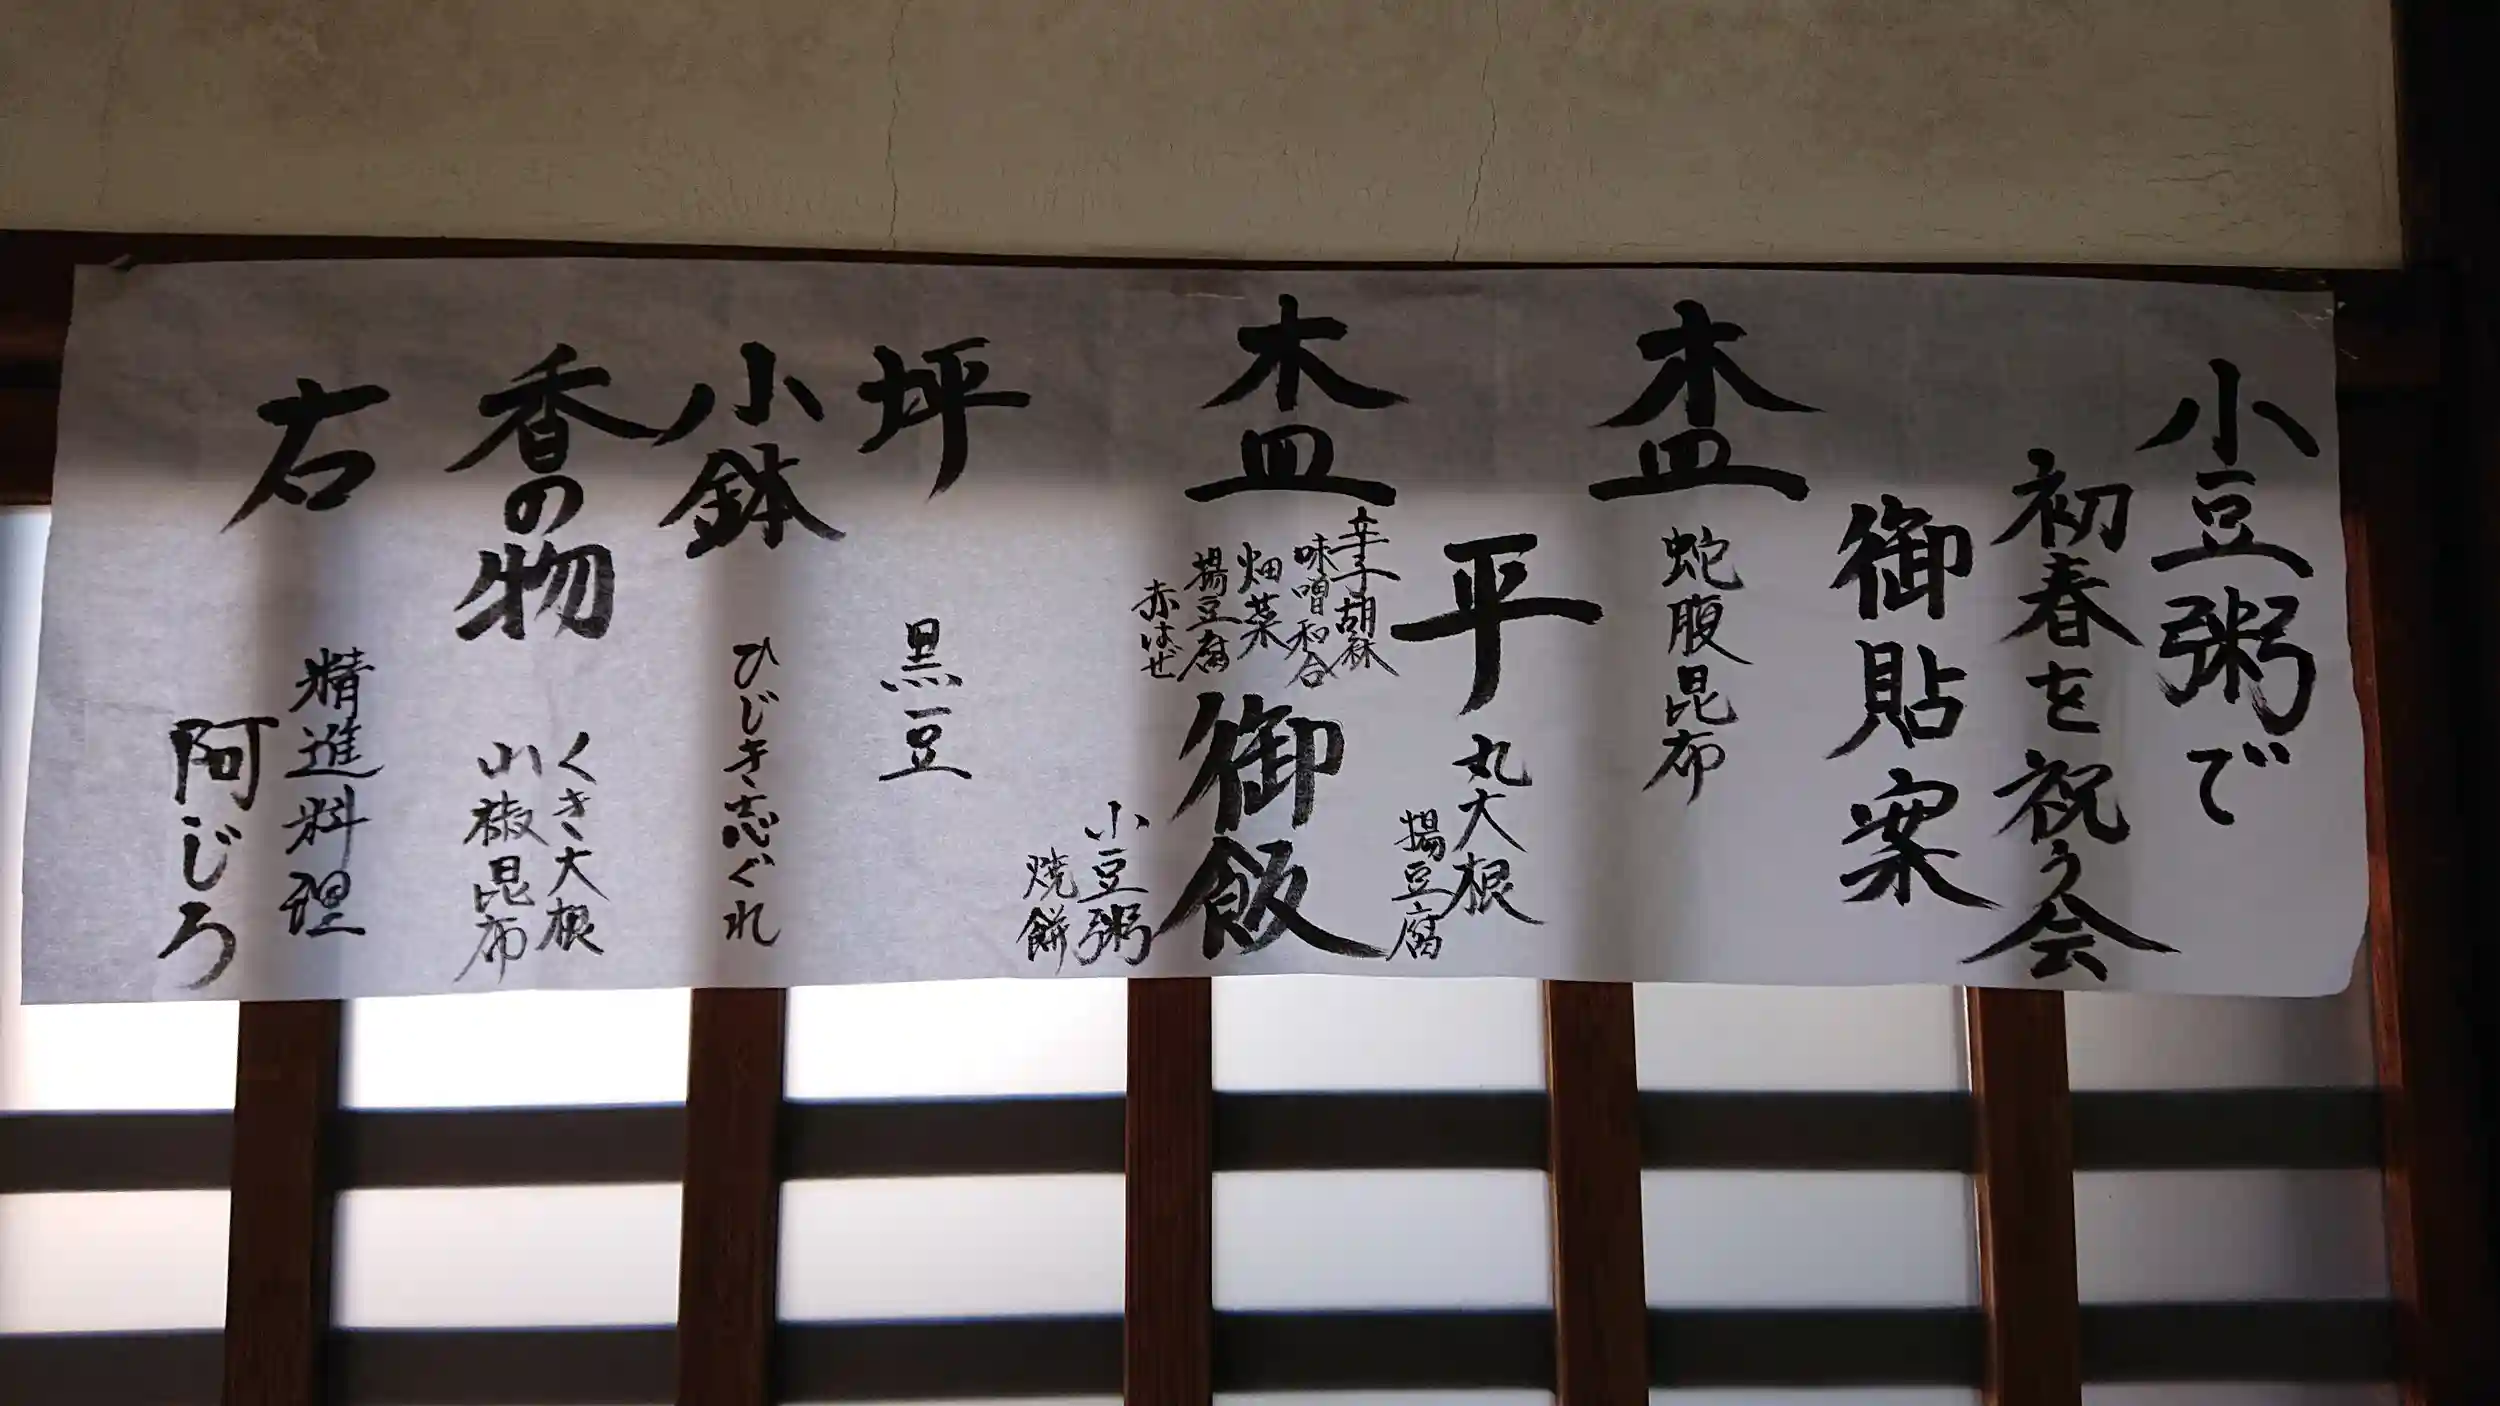 小豆粥で
初春を祝う会
御貼案
盃
蛇腹昆布
平
丸大根
揚豆腐
盃
辛子胡麻
味噌和合
畑菜
揚豆腐
赤はぜ
御飯
小豆粥
焼餅
坪
黒豆
小鉢
ひじき志ぐれ
香の物
くき大根
山椒昆布
右
精進料理
阿じろ